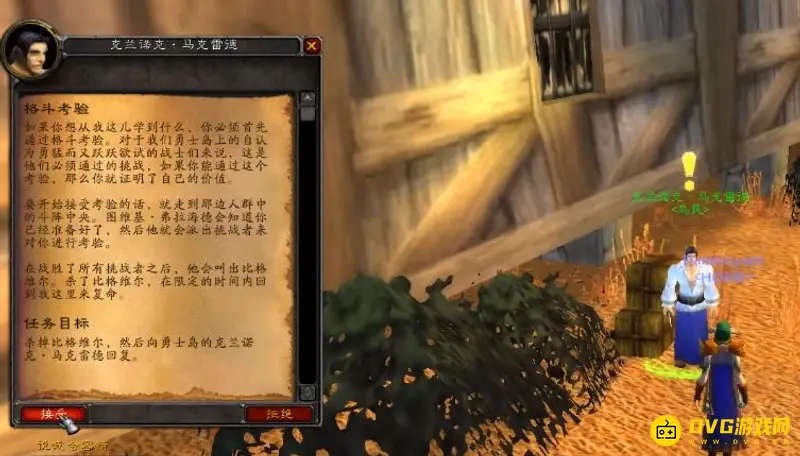 克兰诺克·马克雷德
格斗考验
如果你想从我这儿学到什么，你必须首先
通过格斗考验。对于我们勇士岛上的自认
为勇猛而又跃跃欲试的战士们来说，这是
他们必须通过的挑战，如果你能通过这个
考验，那么你就证明了自己的价值。
要开始接受考验的话，就走到那边人群中
的斗阵中央。图维基·弗拉海德会知道你
已经准备好了，然后他就会派出挑战者来
对你进行考验。
在战胜了所有挑战者之后，他会叫出比格
维尔。杀了比格维尔，在限定的时间内回
到我这里来复命。
任务目标
杀掉比格维尔，然后向勇士岛的克兰诺
克·马克雷德回复。
接受
拒绝
克兰诺克·马克雷德
DVG游戏网